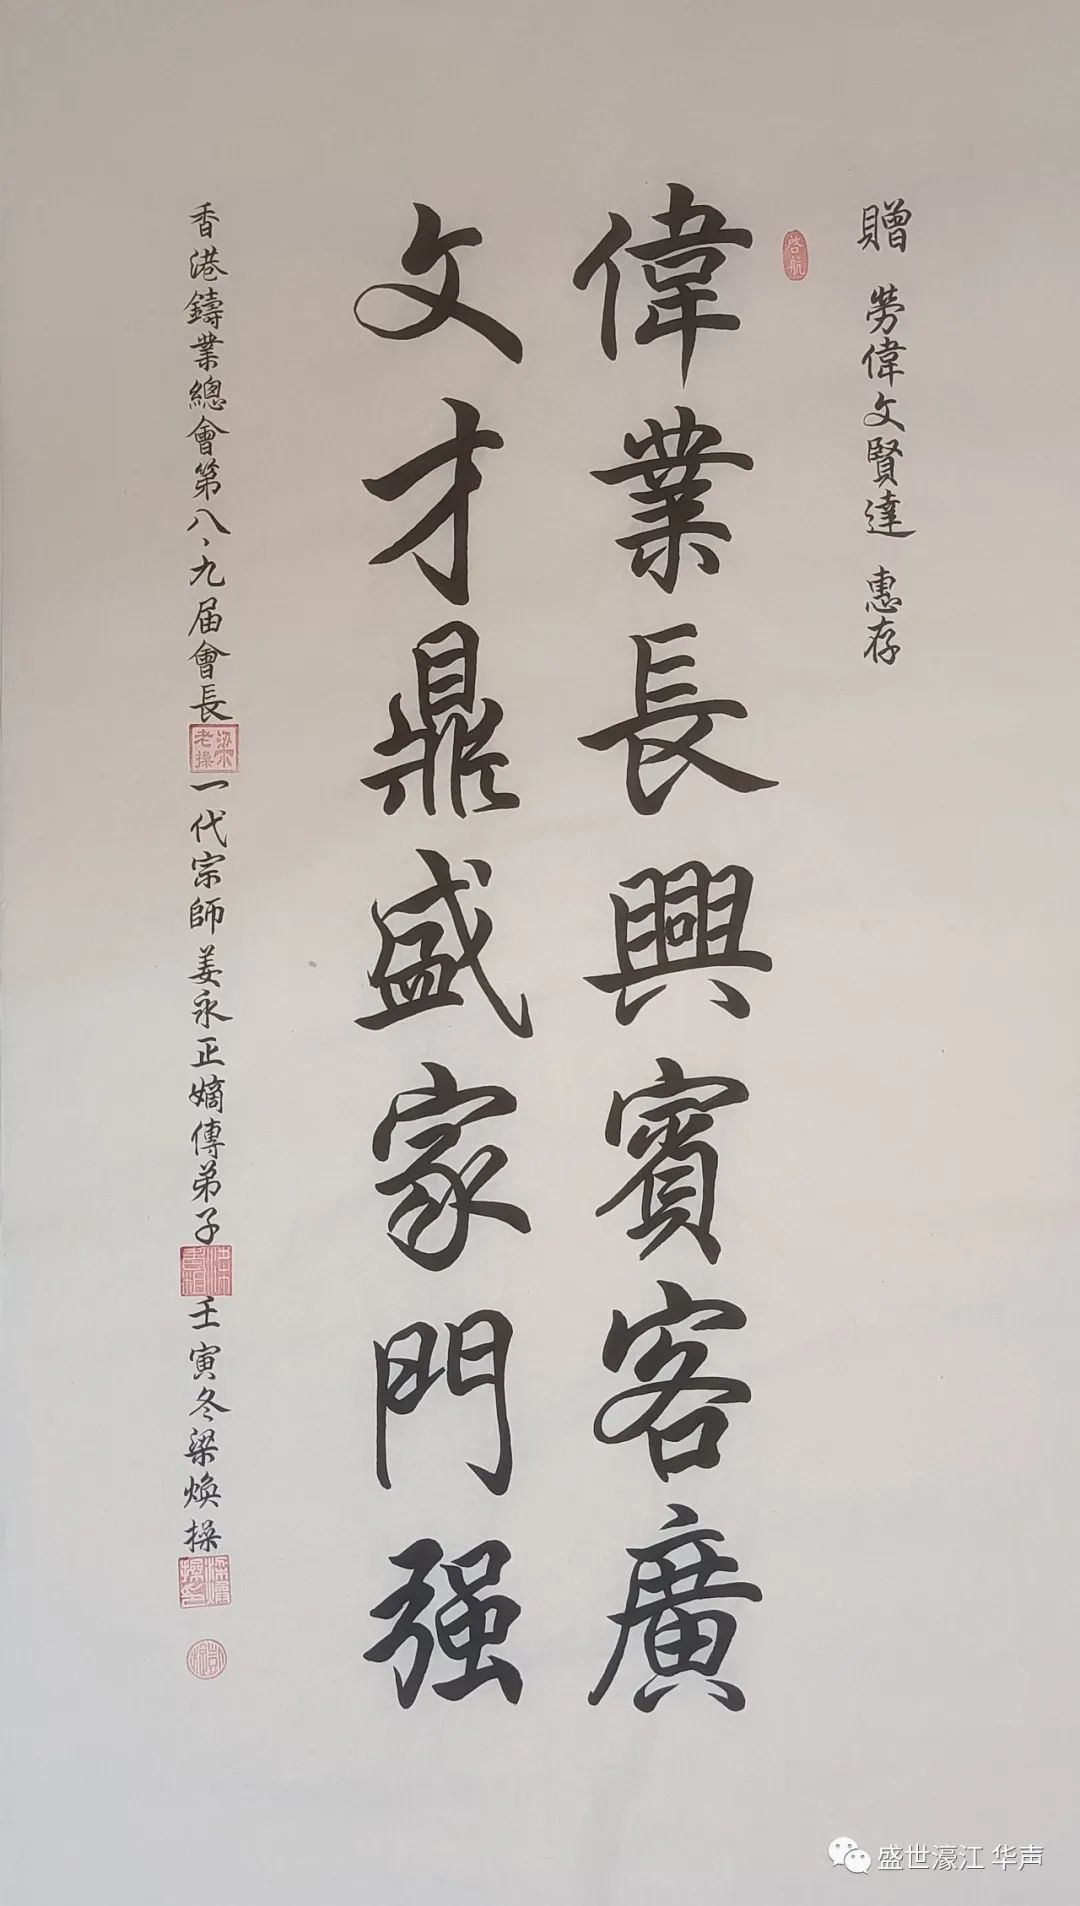 贈 勞偉文賢達 惠存
啓航
偉業長興賓客廣
文才鼎盛家門强
香港鑄業總會第八、九届會長
梁老操
一代宗師姜永正嫡傳弟子
壬寅冬梁煥操
盛世濠江 华声